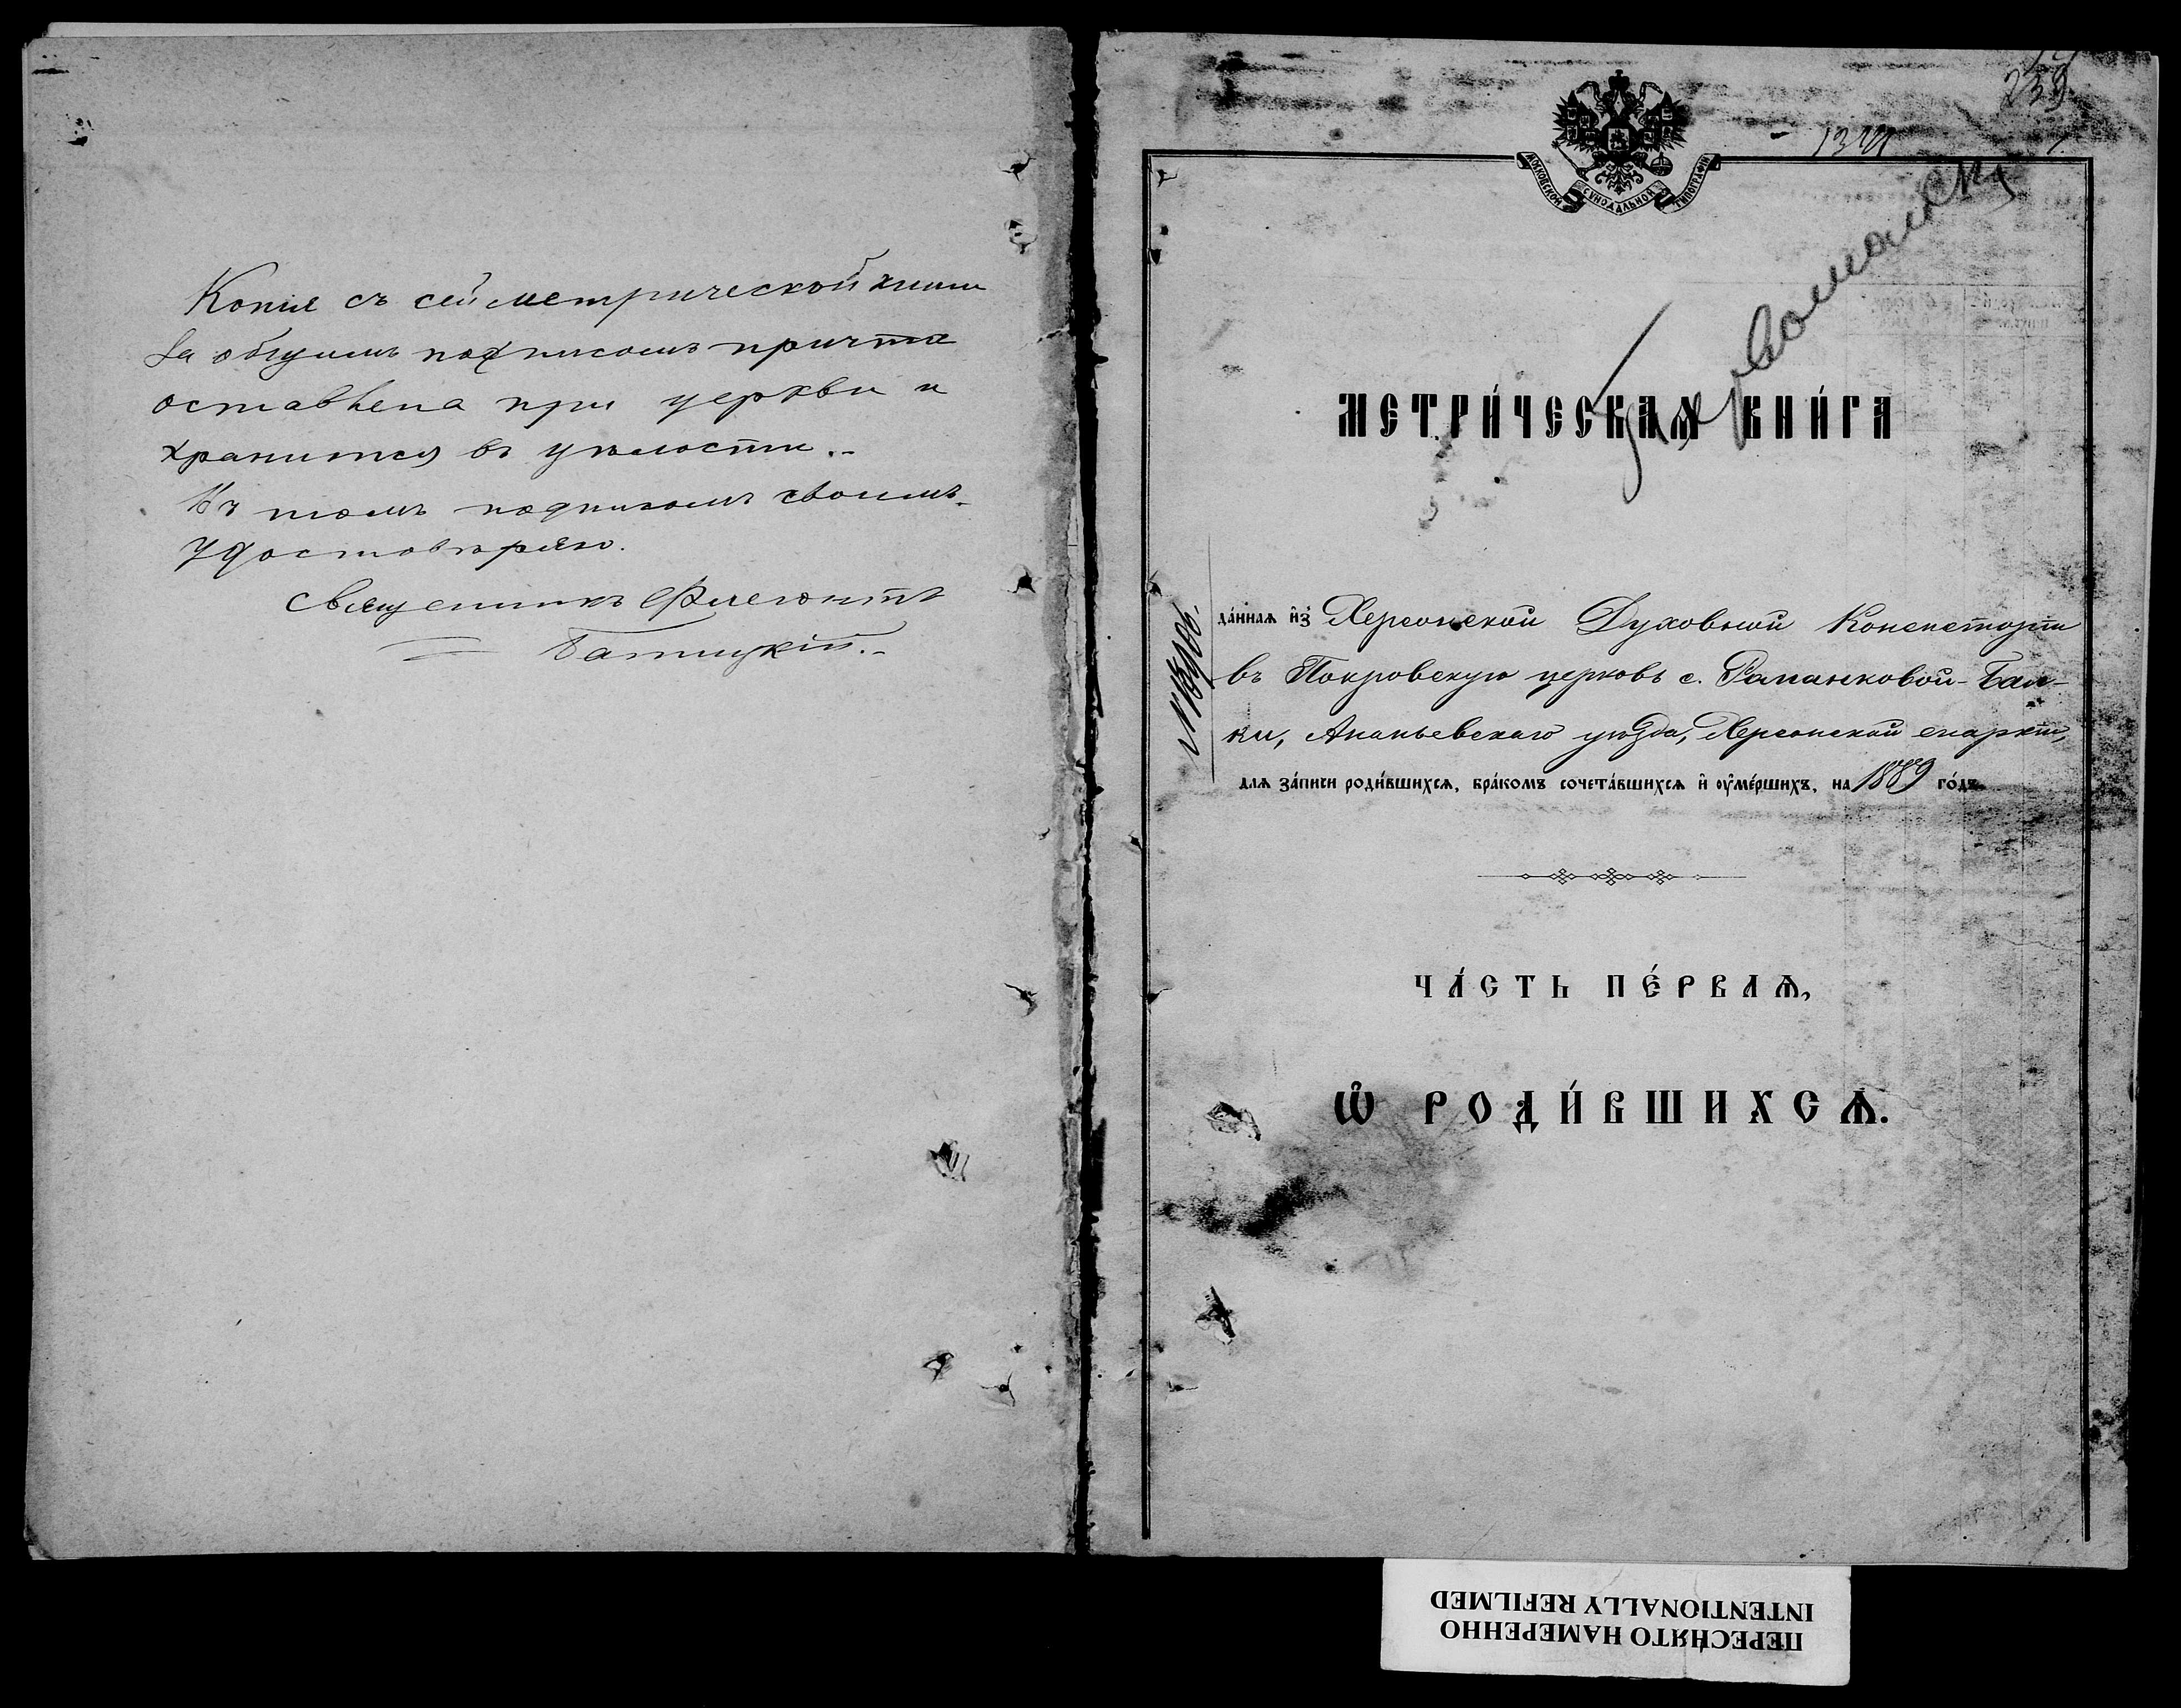 Копія съ сей метрической книги
за общимъ подписомъ причта
оставлена при церкви и
хранится въ цѣлости.-
Въ томъ подписомъ своимъ-
удостовѣряю.
Священникъ Флегонтъ
Батицкій.-
239
МОСКОВСКОЙ СѴНОДАЛЬНОЙ ТИПОГРАФІИ
МЕТРИ́ЧЕСКАѦ КНИ́ГА
да́ннаѧ и҆з̾ Херсонской Духовной Консисторіи
въ Покровскую церковь с. Гапанковой-Бал-
ки, Ананьевскаго уѣзда, Херсонской епархіи,
длѧ за́писи роди́вшихсѧ, бра́комъ сочета́вшихсѧ и҆ оу҆ме́ршихъ, на 1889 го́дъ.
ЧА́СТЬ ПЕ́РВАѦ,
Ѡ҆ РОДИ́ВШИХСѦ.
ПЕРЕСНЯТО НАМЕРЕННО
INTENTIONALLY REFILMED